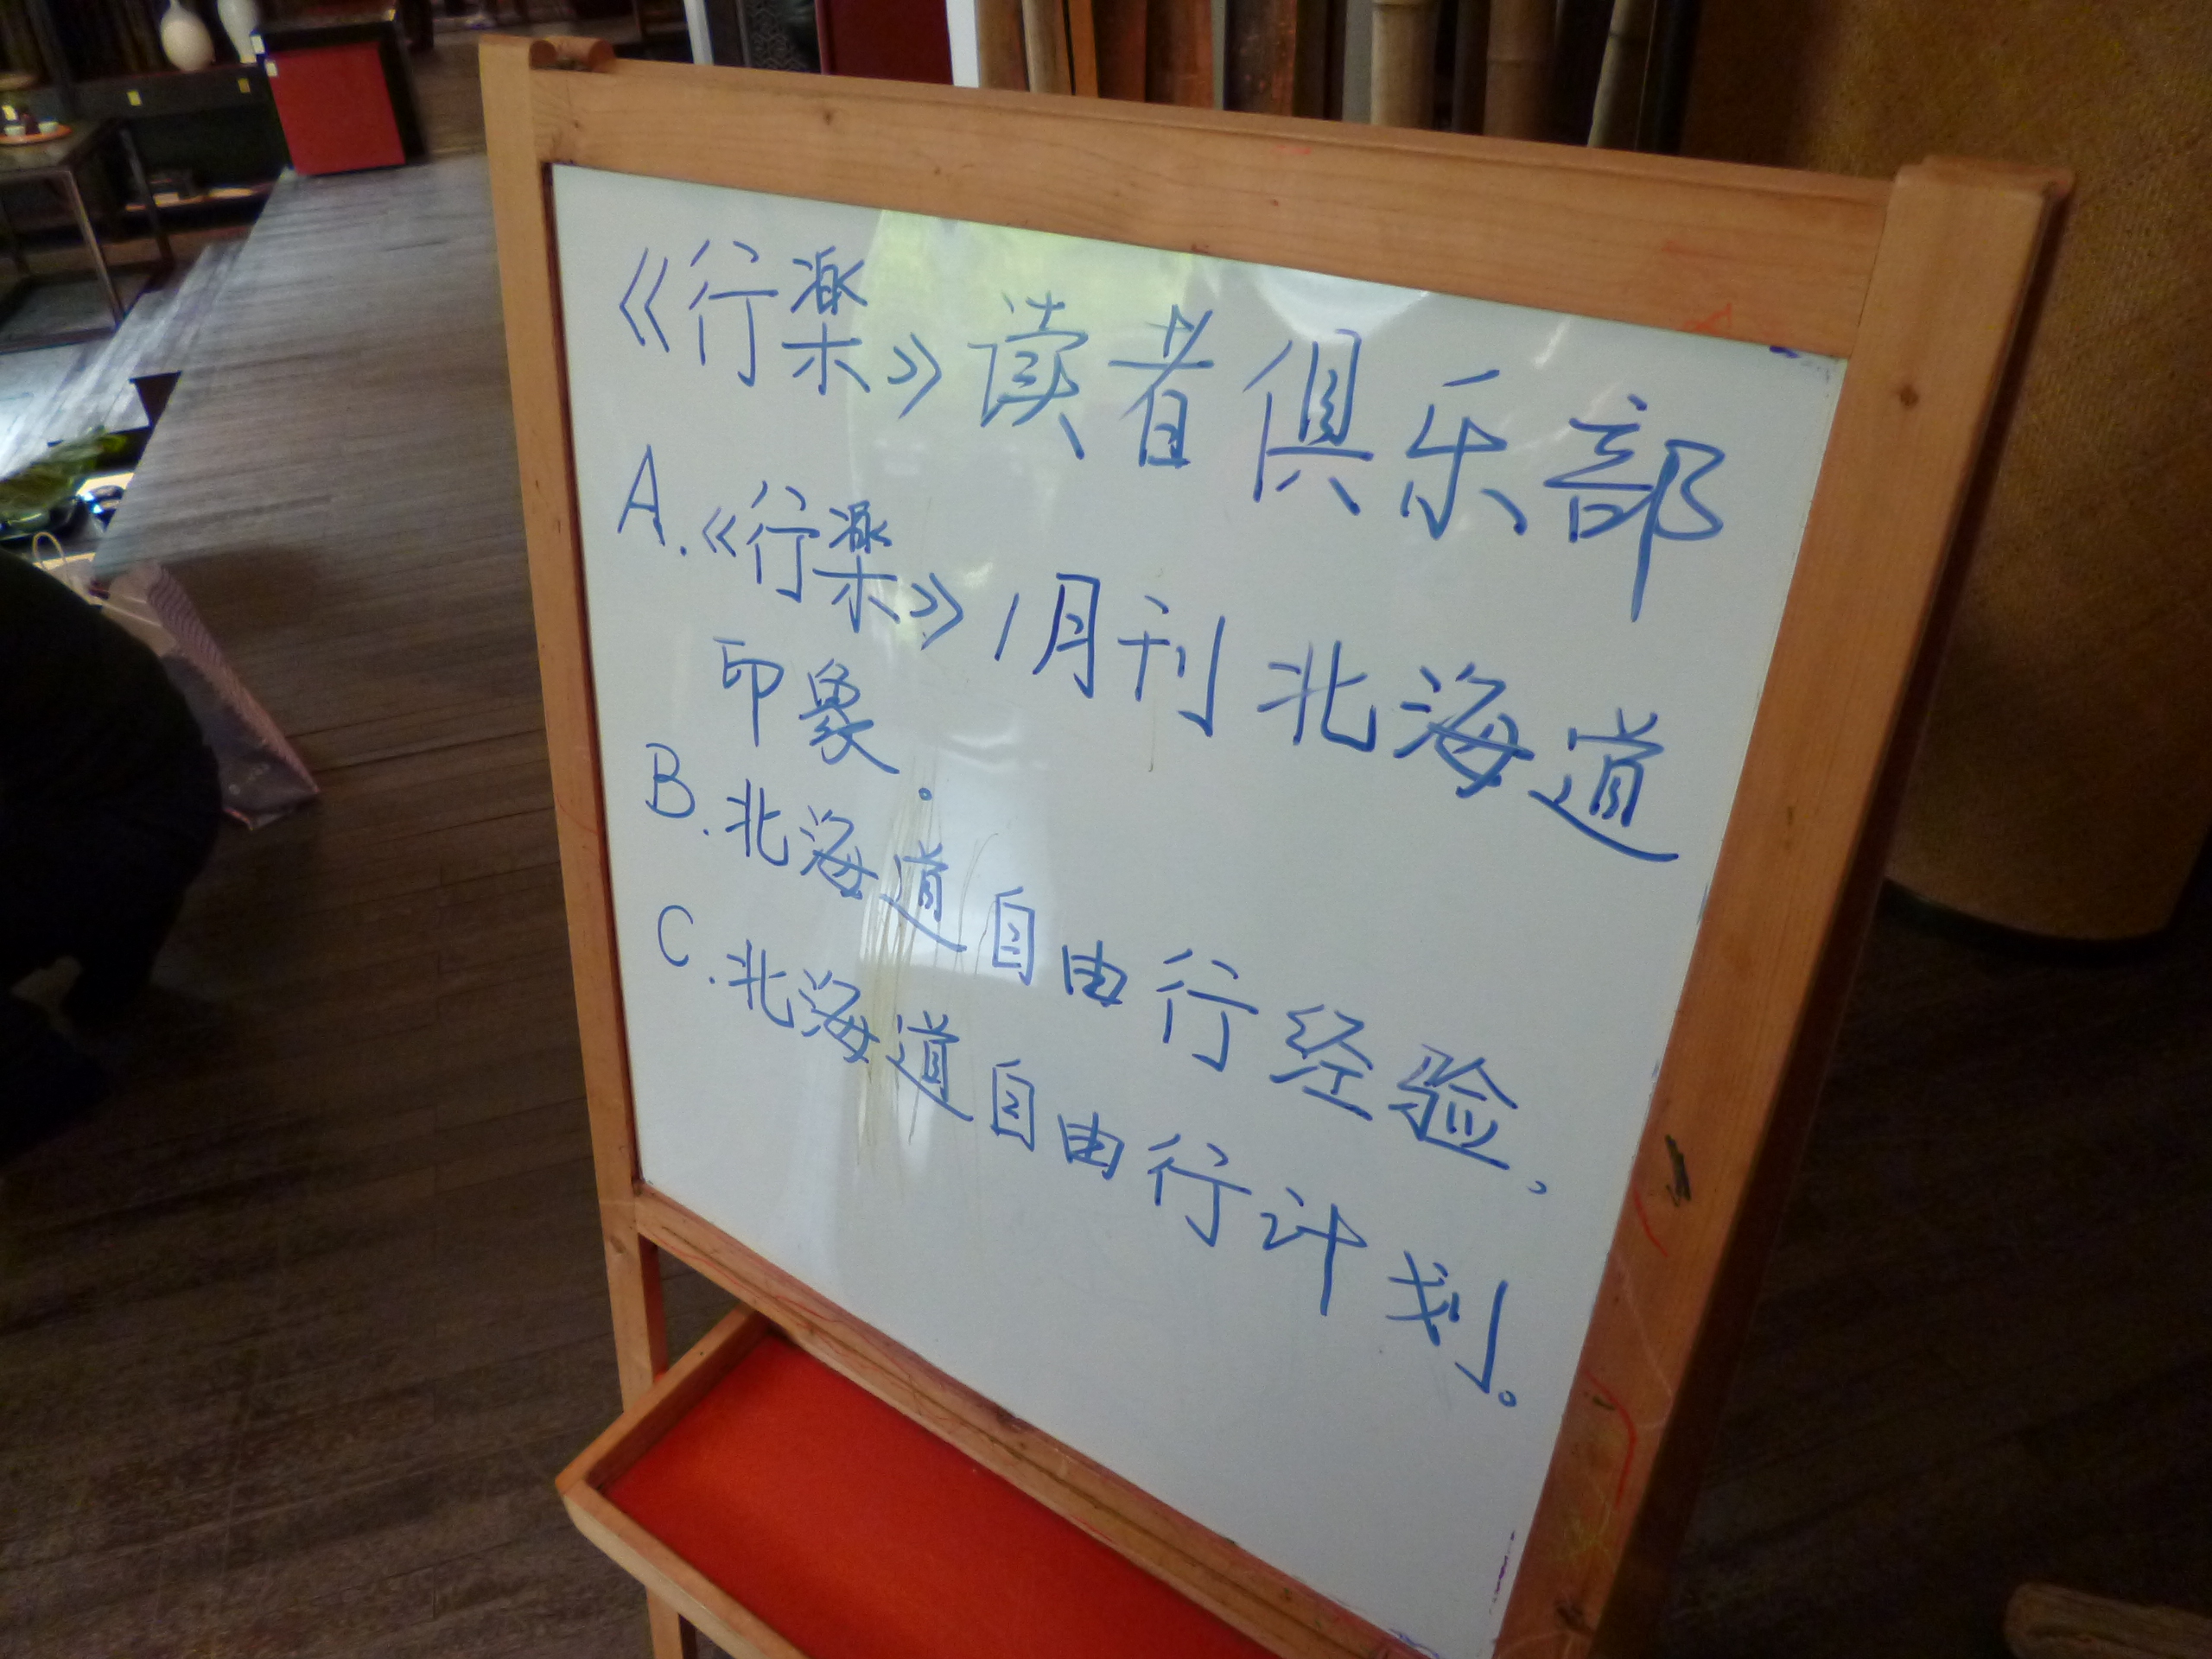 《行楽》读者俱乐部
A.《行楽》1月刊北海道
印象。
B.北海道自由行经验,
C.北海道自由行计划。